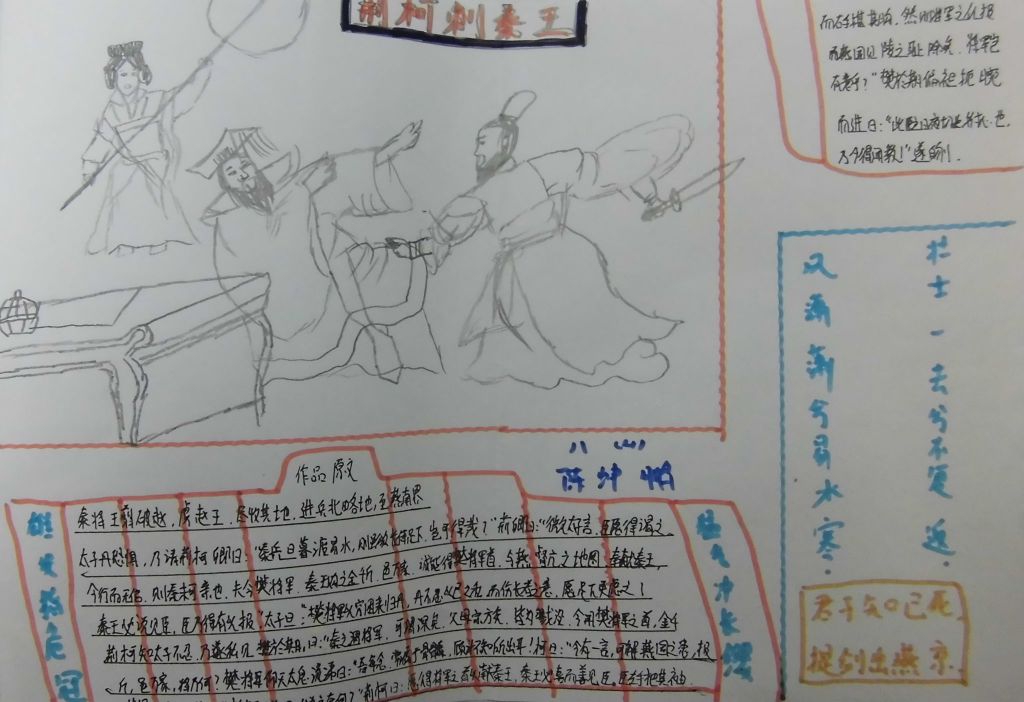 荆柯刺秦王
而右手揕其胸，然则将军之仇报
而燕国见陵之耻除矣．将军岂
有意乎？"樊於期偏袒扼腕
而进曰："此臣日夜切齿
乃今得闻教！"遂自刎．
壮士一去兮不复返．
风萧萧兮易水寒．
君子知己死，
提剑出燕京．
八(4)
陈坤
作品原文
雄发指危冠
猛气冲长缨
秦将王翦破赵，虏赵王，尽收其地，进兵北略地，至燕南界
太子丹恐惧，乃请荆柯曰："秦兵旦暮渡易水，则虽欲长侍足下，岂可得哉？"荆卿曰："微太子言，臣愿得谒之
今行而无信，则秦未可亲也．夫今樊将军，秦王购之金千斤，邑万家．诚能得樊将军首，与燕督亢之地图，奉献秦王，
秦王必说见臣，臣乃得有以报．太子曰："樊将军以穷困来归丹，丹不忍以己之私，而伤长者之意，愿足下更虑之！
荆柯知太子不忍，乃遂私见樊於期，曰："秦之遇将军，可谓深矣．父母宗族，皆为戮没．今闻购将军之首，金千
斤，邑万家，将奈何？樊将军仰天太息流涕曰："吾每念，常痛于骨髓，顾计不知所出耳！柯曰："今有一言，可解燕国之患，报
荆柯曰：愿得将军之首以献秦王，秦王必喜而善见臣，臣左手把其袖